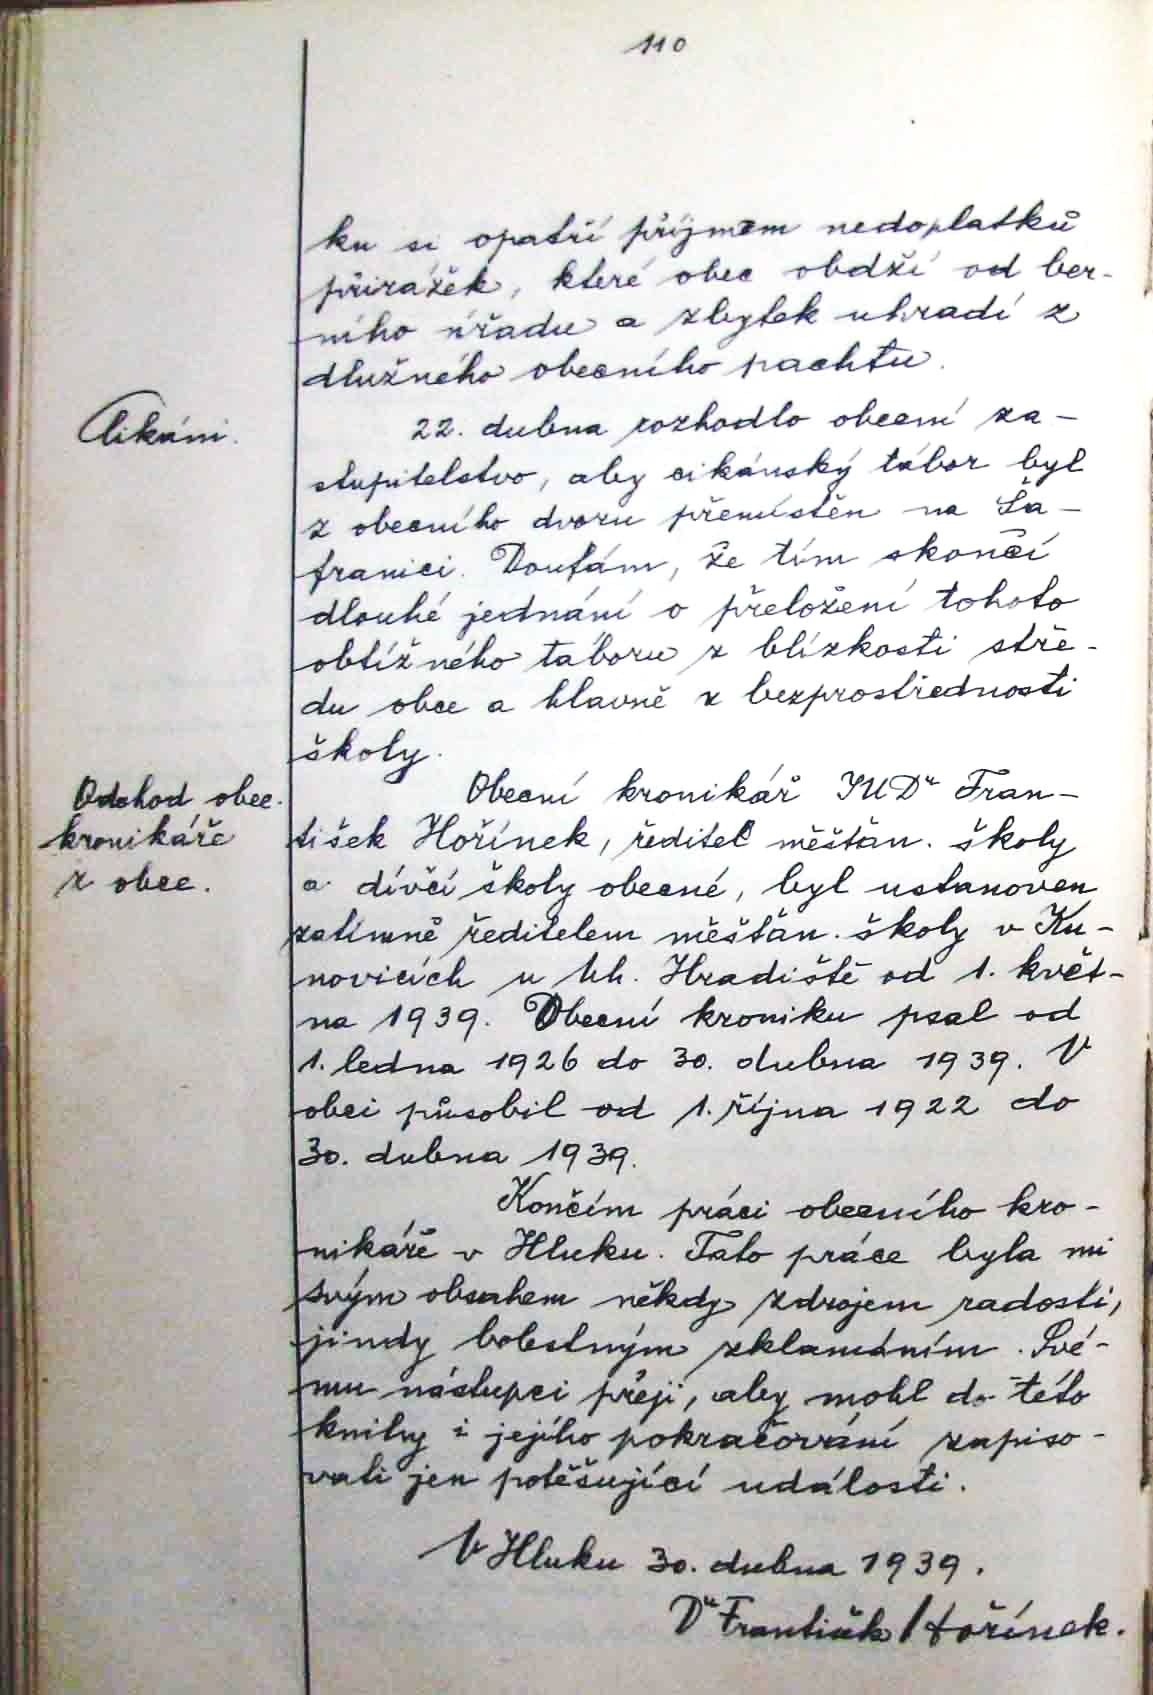 110
ku si opatří příjmem nedoplatků
přirážek, které obec obdží od ber-
ního úřadu a zbytek uhradí z
dlužného obecního pachtu.
Cikáni.
22. dubna rozhodlo obecní za-
stupitelstvo, aby cikánský tábor byl
z obecního dvoru přemístěn na Ša-
franici. Doufám, že tím skončí
dlouhé jednání o přeložení tohoto
obtížného táboru z blízkosti stře-
du obce a hlavně z bezprostřednosti
školy.
Odchod obec.
kronikáře
z obce.
Obecní kronikář JUDr Fran-
tišek Hořínek, ředitel měšťan. školy
a dívčí školy obecné, byl ustanoven
zatímně ředitelem měšťan. školy v Ku-
novicích u Uh. Hradiště od 1. květ-
na 1939. Obecní kroniku psal od
1. ledna 1926 do 30. dubna 1939. V
obci působil od 1. října 1922 do
30. dubna 1939.
Končím práci obecního kro-
nikáře v Hluku. Tato práce byla mi
svým obsahem někdy zdrojem radosti,
jindy bolestným zklamáním. Své-
mu nástupci přeji, aby mohl do této
knihy i jejího pokračování zapiso-
vati jen potěšující události.
V Hluku 30. dubna 1939.
Dr František Hořínek.